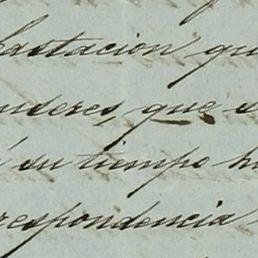 estacion qu
nderes, que s
á su tiempo h
respondencia